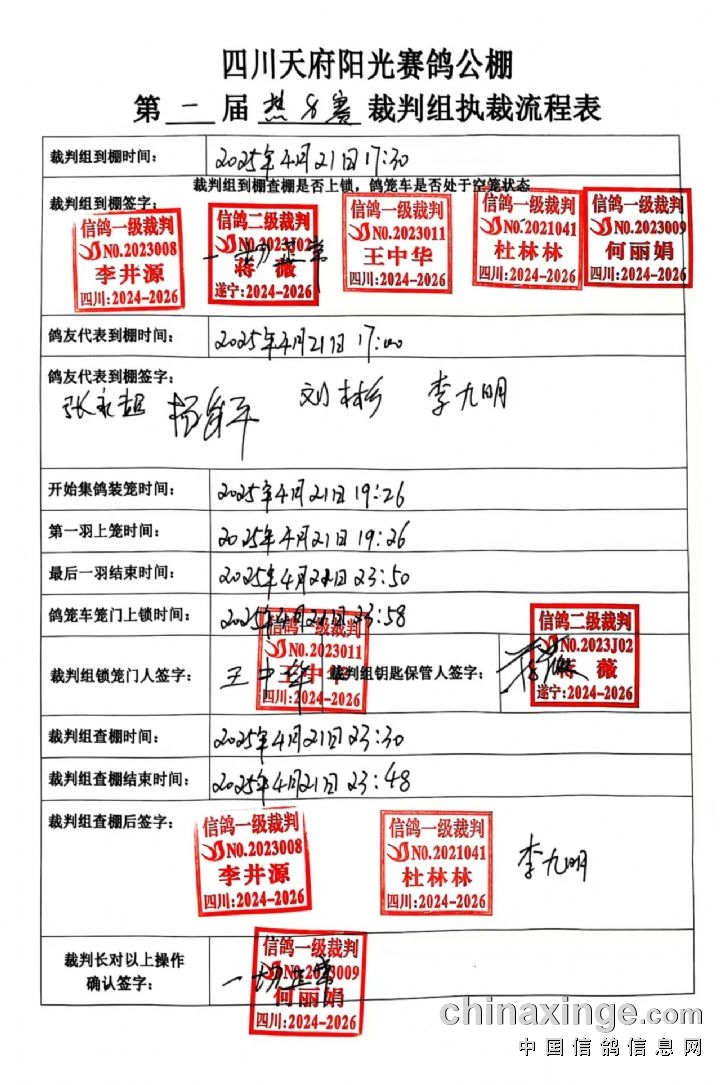 四川天府阳光赛鸽公棚
第 一 届 热身赛 裁判组执裁流程表
裁判组到棚时间： 2025年4月21日17:30
裁判组到棚查棚是否上锁，鸽笼车是否处于空笼状态
裁判组到棚签字： 一切正常
信鸽一级裁判 NO.2023008 李井源 四川:2024-2026
信鸽二级裁判 NO.2023J02 蒋薇 遂宁:2024-2026
信鸽一级裁判 NO.2023011 王中华 四川:2024-2026
信鸽一级裁判 NO.2021041 杜林林 四川:2024-2026
信鸽一级裁判 NO.2023009 何丽娟 四川:2024-2026
鸽友代表到棚时间： 2025年4月21日 17:00
鸽友代表到棚签字：
张永超 刘彬 李九明
开始集鸽装笼时间： 2025年4月21日 19:26
第一羽上笼时间： 2025年4月21日 19:26
最后一羽结束时间： 2025年4月21日 23:50
鸽笼车笼门上锁时间： 2025年4月21日 23:58
裁判组锁笼门人签字： 王中华
信鸽一级裁判 NO.2023011 王中华 四川:2024-2026
裁判组钥匙保管人签字： 蒋薇
信鸽二级裁判 NO.2023J02 蒋薇 遂宁:2024-2026
裁判组查棚时间： 2025年4月21日 23:30
裁判组查棚结束时间： 2025年4月21日 23:48
裁判组查棚后签字：
信鸽一级裁判 NO.2023008 李井源 四川:2024-2026
信鸽一级裁判 NO.2021041 杜林林 四川:2024-2026
李九明
裁判长对以上操作
确认签字： 一切正常
信鸽一级裁判 NO.2023009 何丽娟 四川:2024-2026
chinaxinge.com
中国信鸽信息网